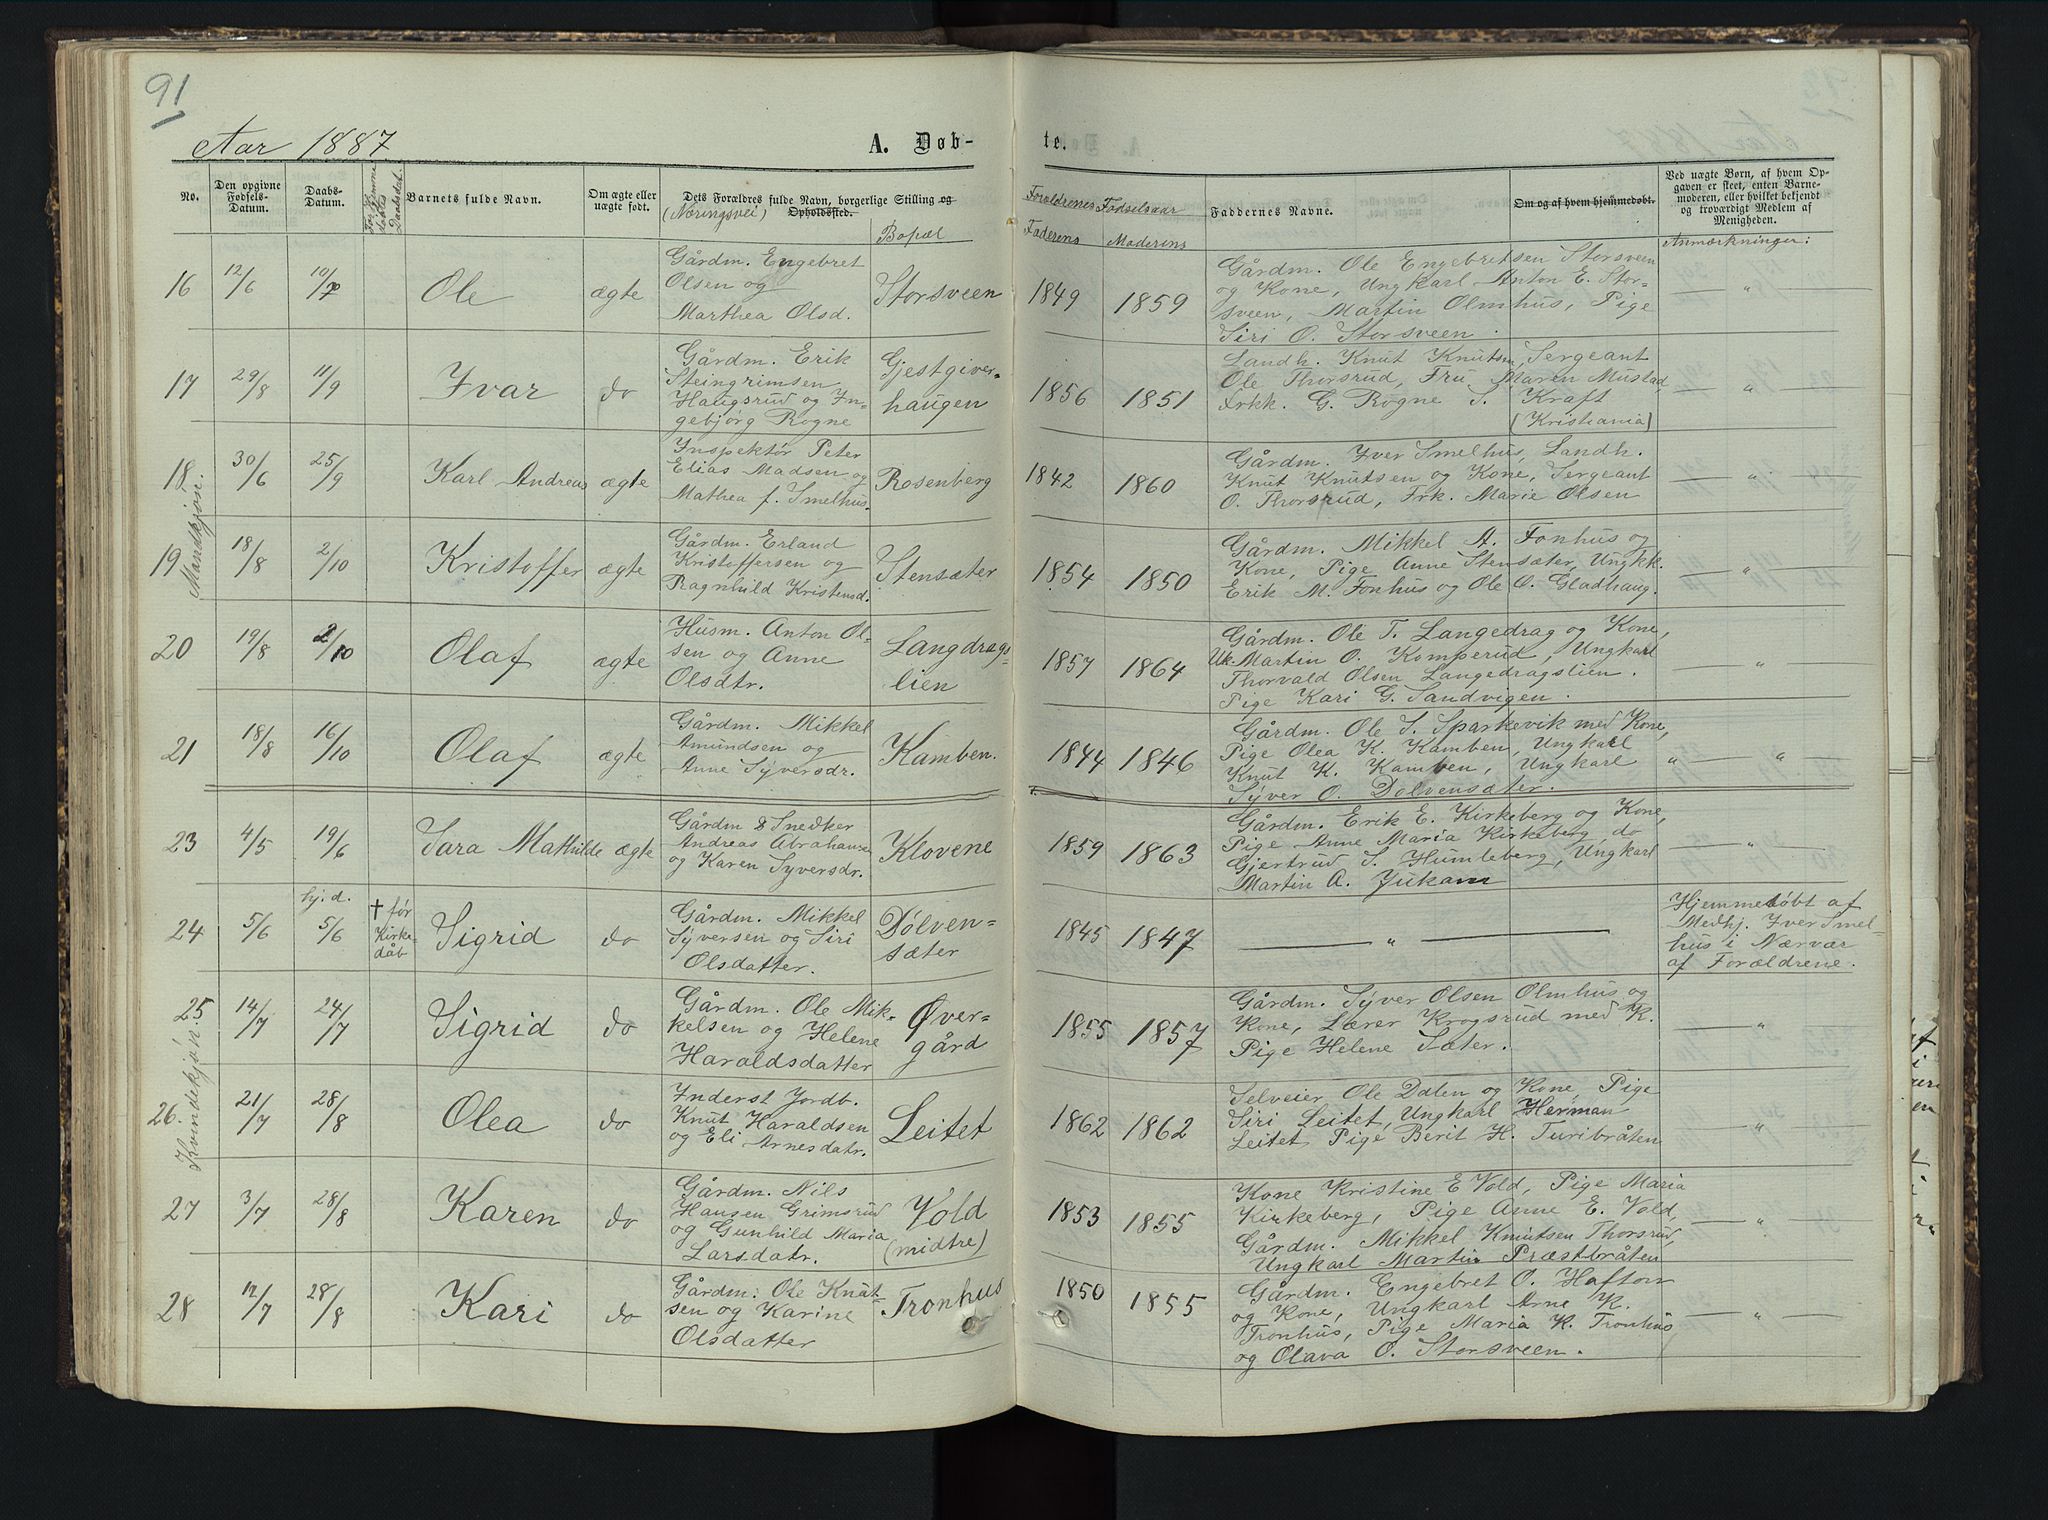 91
Aar 1887
A. Døb-
te.
No.
Den opgivne Fødsels-Datum.
Daabs-Datum.
For hjemmedøbte Daabsdat.
Barnets fulde Navn.
Om ægte eller uægte født.
Dets Forældres fulde Navn, borgerlige Stilling og Opholdssted.
(Næringsvei)
Bopæl
Forældrenes Fødselsaar
Faderens
Moderens
Faddernes Navne.
Om og af hvem hjemmedøbt.
Ved uægte Børn, af hvem Op-
gaven er skeet, enten Barne-
moderen, eller hvilket bekjendt
og troværdigt Medlem af
Menigheden.
Anmærkninger:
Mandkjøn.
16 12/6 10/7 Ole ægte
Gårdm. Engebret
Olsen og
Marthea Olsd.
Storsveen
1849 1859
Gårdm. Ole Engebretsen Storsveen
og Kone, Ungkarl Anton E. Stor-
sveen, Martin Olmhus, Pige
Siri O. Storsveen.
— " —
17 29/8 11/9 Ivar do
Gårdm. Erik
Steingrimsen
Haugsrud og In-
gebjørg Rogne
Gjestgiver-
haugen
1856 1851
Landh. Knut Knutsen, Sergeant
Ole Thorsrud, Fru Maren Mustad,
Frkk. G. Rogne S. Kraft
(Kristiania)
— " —
18 30/6 25/9 Karl Andreas ægte
Inspektør Peter
Elias Madsen og
Mathea f. Smelhus.
Rosenberg
1842 1860
Gårdm. Iver Smelhus, Landh.
Knut Knutsen og Kone, Sergeant
O. Thorsrud, Frk. Marie Olsen
— " —
19 18/8 2/10 Kristoffer ægte
Gårdm. Erland
Kristoffersen og
Ragnhild Kristensd.
Stensæter
1854 1850
Gårdm. Mikkel A. Fonhus og
Kone, Pige Anne Stensæter, Ungkk.
Erik M. Fonhus og Ole O. Gladhaug.
— " —
20 19/8 2/10 Olaf ægte
Husm. Anton Ol-
sen og Anne
Olsdtr.
Langdrags-
lien
1857 1864
Gårdm. Ole T. Langedrag og Kone,
Uk. Martin O. Komperud, Ungkarl
Thorvald Olsen Langedragslien.
Pige Kari G. Sandvigen.
— " —
21 18/8 16/10 Olaf ægte
Gårdm. Mikkel
Amundsen og
Anne Syversdr.
Kamben.
1844 1846
Gårdm. Ole S. Sparkevik med Kone,
Pige Olea K. Kamben, Ungkarl
Knut K. Kamben, Ungkarl
Syver O. Dølvensæter.
" — "
Kvindekjøn.
23 4/5 19/6 Sara Mathilde ægte
Gårdm & Snedker
Andreas Abrahansen
og Karen Syversdr.
Klovene
1859 1863
Gårdm. Erik E. Kirkeberg og Kone,
Pige Anne Maria Kirkeberg, do
Gjertrud S. Humleberg, Ungkarl
Martin A. Jukam
— " —
24 5/6 hj.d. 5/6 † før Kirke-dåb Sigrid do
Gårdm. Mikkel
Syversen og Siri
Olsdatter.
Dølven-
sæter
1845 1847
— " —
Hjemmedøbt af
Medhj. Iver Smel-
hus i Nærvær
af Forældrene.
25 14/7 24/7 Sigrid do
Gårdm. Ole Mik-
kelsen og Helene
Haraldsdatter
Øver-
gård
1855 1857
Gårdm. Syver Olsen Olmhus og
Kone, Lærer Krogsrud med K.
Pige Helene Sæter.
— " —
26 21/7 28/8 Olea do
Inderst Jordb.
Knut Haraldsen
og Eli Arnesdatr.
Leitet
1862 1862
Selveier Ole Dalen og Kone, Pige
Siri Leitet, Ungkarl Herman
Leitet Pige Berit H. Turibråten
— " —
27 3/7 28/8 Karen do
Gårdm. Nils
Hansen Grimsrud
og Gunhild Maria
Larsdatr.
Vold
(midtre)
1853 1855
Kone Kristine E Vold, Pige Maria
Kirkeberg, Pige Anne E. Vold,
Gårdm. Mikkel Knutsen Thorsrud,
Ungkarl Martin Præstbråten
— " —
28 12/7 28/8 Kari do
Gårdm: Ole Knut-
sen og Karine
Olsdatter
Tronhus
1850 1855
Gårdm. Engebret O. Hafton
og Kone, Ungkarl Arne K.
Tronhus, Pige Maria K. Tronhus
og Olava O. Storsveen.
— " —